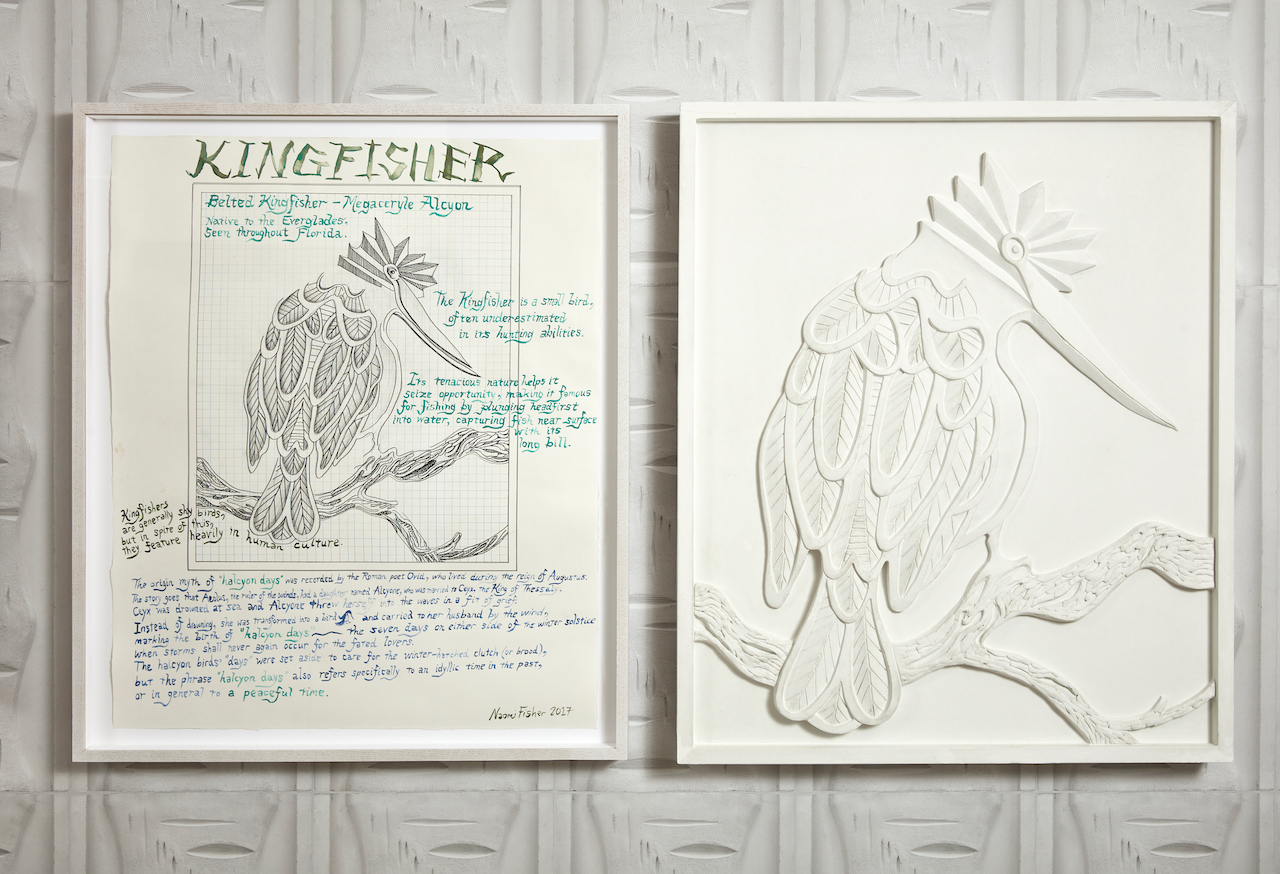 KINGFISHER
Belted Kingfisher – Megaceryle Alcyon
Native to the Everglades.
Seen throughout Florida.
The Kingfisher is a small bird,
often underestimated
in its hunting abilities.
Its tenacious nature helps it
seize opportunity, making it famous
for fishing by plunging headfirst
into water, capturing fish near surface
with its
long bill.
Kingfishers
are generally shy birds,
but in spite of this,
they feature heavily in human culture.
The origin myth of "halcyon days" was recorded by the Roman poet Ovid, who lived during the reign of Augustus.
The story goes that Aeolus, the ruler of the winds, had a daughter named Alcyone, who was married to Ceyx, the King of Thessaly.
Ceyx was drowned at sea and Alcyone threw herself into the waves in a fit of grief.
Instead of drowning, she was transformed into a bird and carried to her husband by the wind,
marking the birth of "halcyon days — the seven days on either side of the winter solstice
when storms shall never again occur for the fated lovers.
The halcyon birds' "days" were set aside to care for the winter-hatched clutch (or brood),
but the phrase "halcyon days" also refers specifically to an idyllic time in the past,
or in general to a peaceful time.
Naomi Fisher 2017